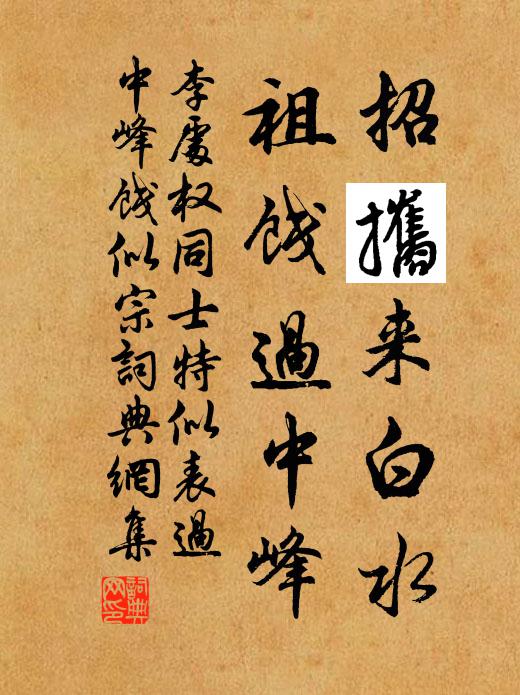 招攜来白水
祖餞過中峰
李處权同士特似表過
中峰餞似宗詞典網集
詞典網印